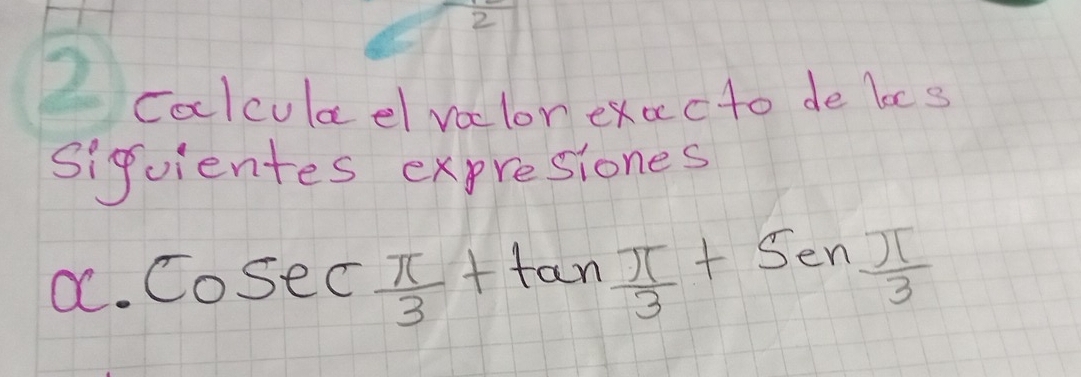 2
2 Calcula el valor exacto de las
siguientes expresiones
a. Cosec π/3 + tan π/3 + Sen π/3